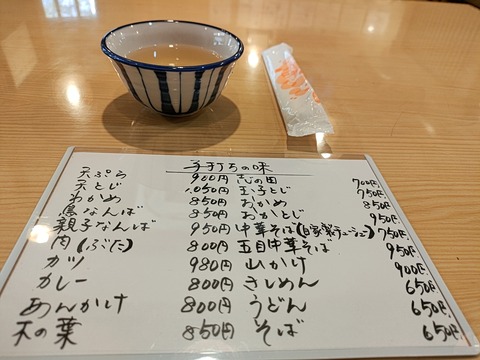 手打ちの味
天ぷら 900円
天とじ 1,050円
わかめ 850円
鳥なんば 850円
親子なんば 950円
肉(ぶた) 800円
カツ 980円
カレー 800円
あんかけ 800円
木の葉 850円
志の田 700円
玉子とじ 750円
おかめ 850円
おかとじ 950円
中華そば(自家製チャーシュー) 750円
五目中華そば 950円
山かけ 900円
きしめん 650円
うどん 650円
そば 650円